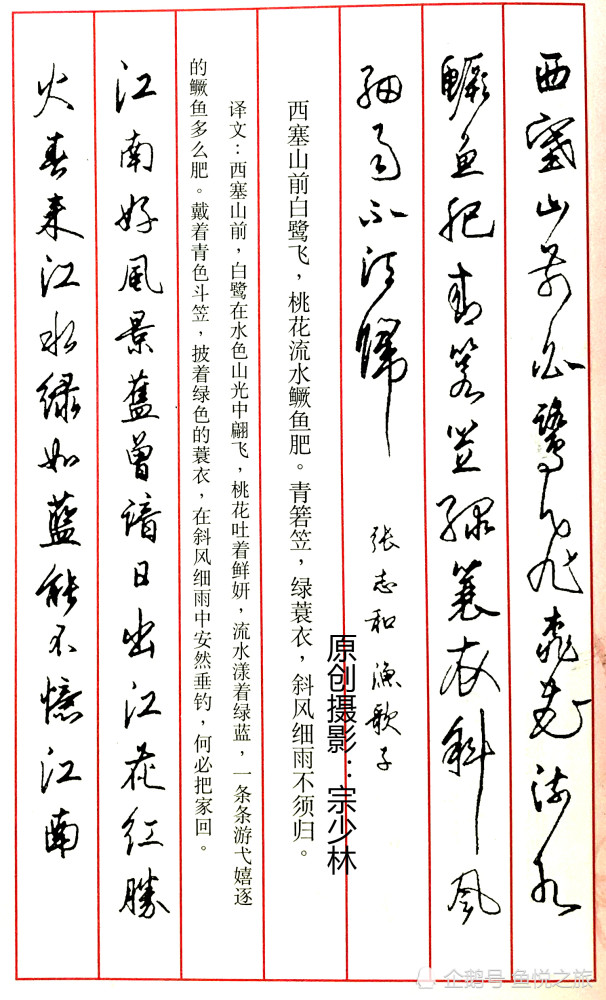 西塞山前白鹭飞桃花流水
鳜鱼肥青箬笠绿蓑衣斜风
细雨不须归
张志和 渔歌子
原创摄影：宗少林
西塞山前白鹭飞，桃花流水鳜鱼肥。青箬笠，绿蓑衣，斜风细雨不须归。
译文：西塞山前，白鹭在水色山光中翩飞，桃花吐着鲜妍，流水漾着绿蓝，一条条游弋嬉逐
的鳜鱼多么肥。戴着青色斗笠，披着绿色的蓑衣，在斜风细雨中安然垂钓，何必把家回。
江南好風景舊曾諳日出江花红勝
火春来江水绿如藍能不憶江南
企鹅号 鱼悦之旅